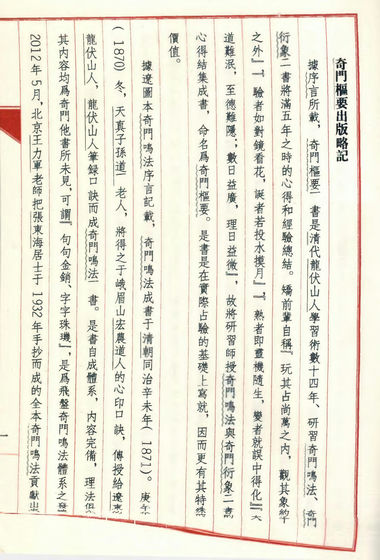 奇門樞要出版略記
據序言所載，奇門樞要一書是清代龍伏山人學習術數十四年、研習奇門鳴法、奇門
衍象二書將滿五年之時的心得和經驗總結。矯前輩自稱『玩其占尚萬之內，觀其象約
之外』『驗者如對鏡看花，誕者若投水摸月』『熟者即靈機隨生，變者就誤中得化』『
道難泯，至德難隱；數日益廣，理日益微』，故將研習師授奇門鳴法與奇門衍象二書
心得結集成書，命名爲奇門樞要。是書是在實際占驗的基礎上寫就，因而更有其特殊
價值。
據遼圖本奇門鳴法序言記載，奇門鳴法成書于清朝同治辛未年（1871）。庚午
（1870）冬，天真子孫道一老人，將得之于峨眉山宏農道人的心印口訣，傳授給遼東
龍伏山人，龍伏山人筆錄口訣而成奇門鳴法一書。是書自成體系，內容完備，理法俱
其內容均爲奇門他書所未見，可謂『句句金銷、字字珠璣』，是爲飛盤奇門鳴法體系之發
2012年5月，北京王力軍老師把張東海居士于1932年手抄而成的全本奇門鳴法貢獻出
一